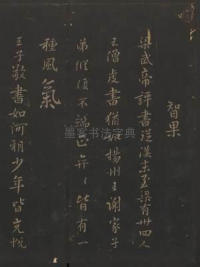 智果
梁武帝評書從漢末至梁有卅四人
王僧虔書猶如揚州王謝家子
弟縱復不端正奕奕皆有一
種風氣
王子敬書如河朔少年皆充悅
墨客书法字典